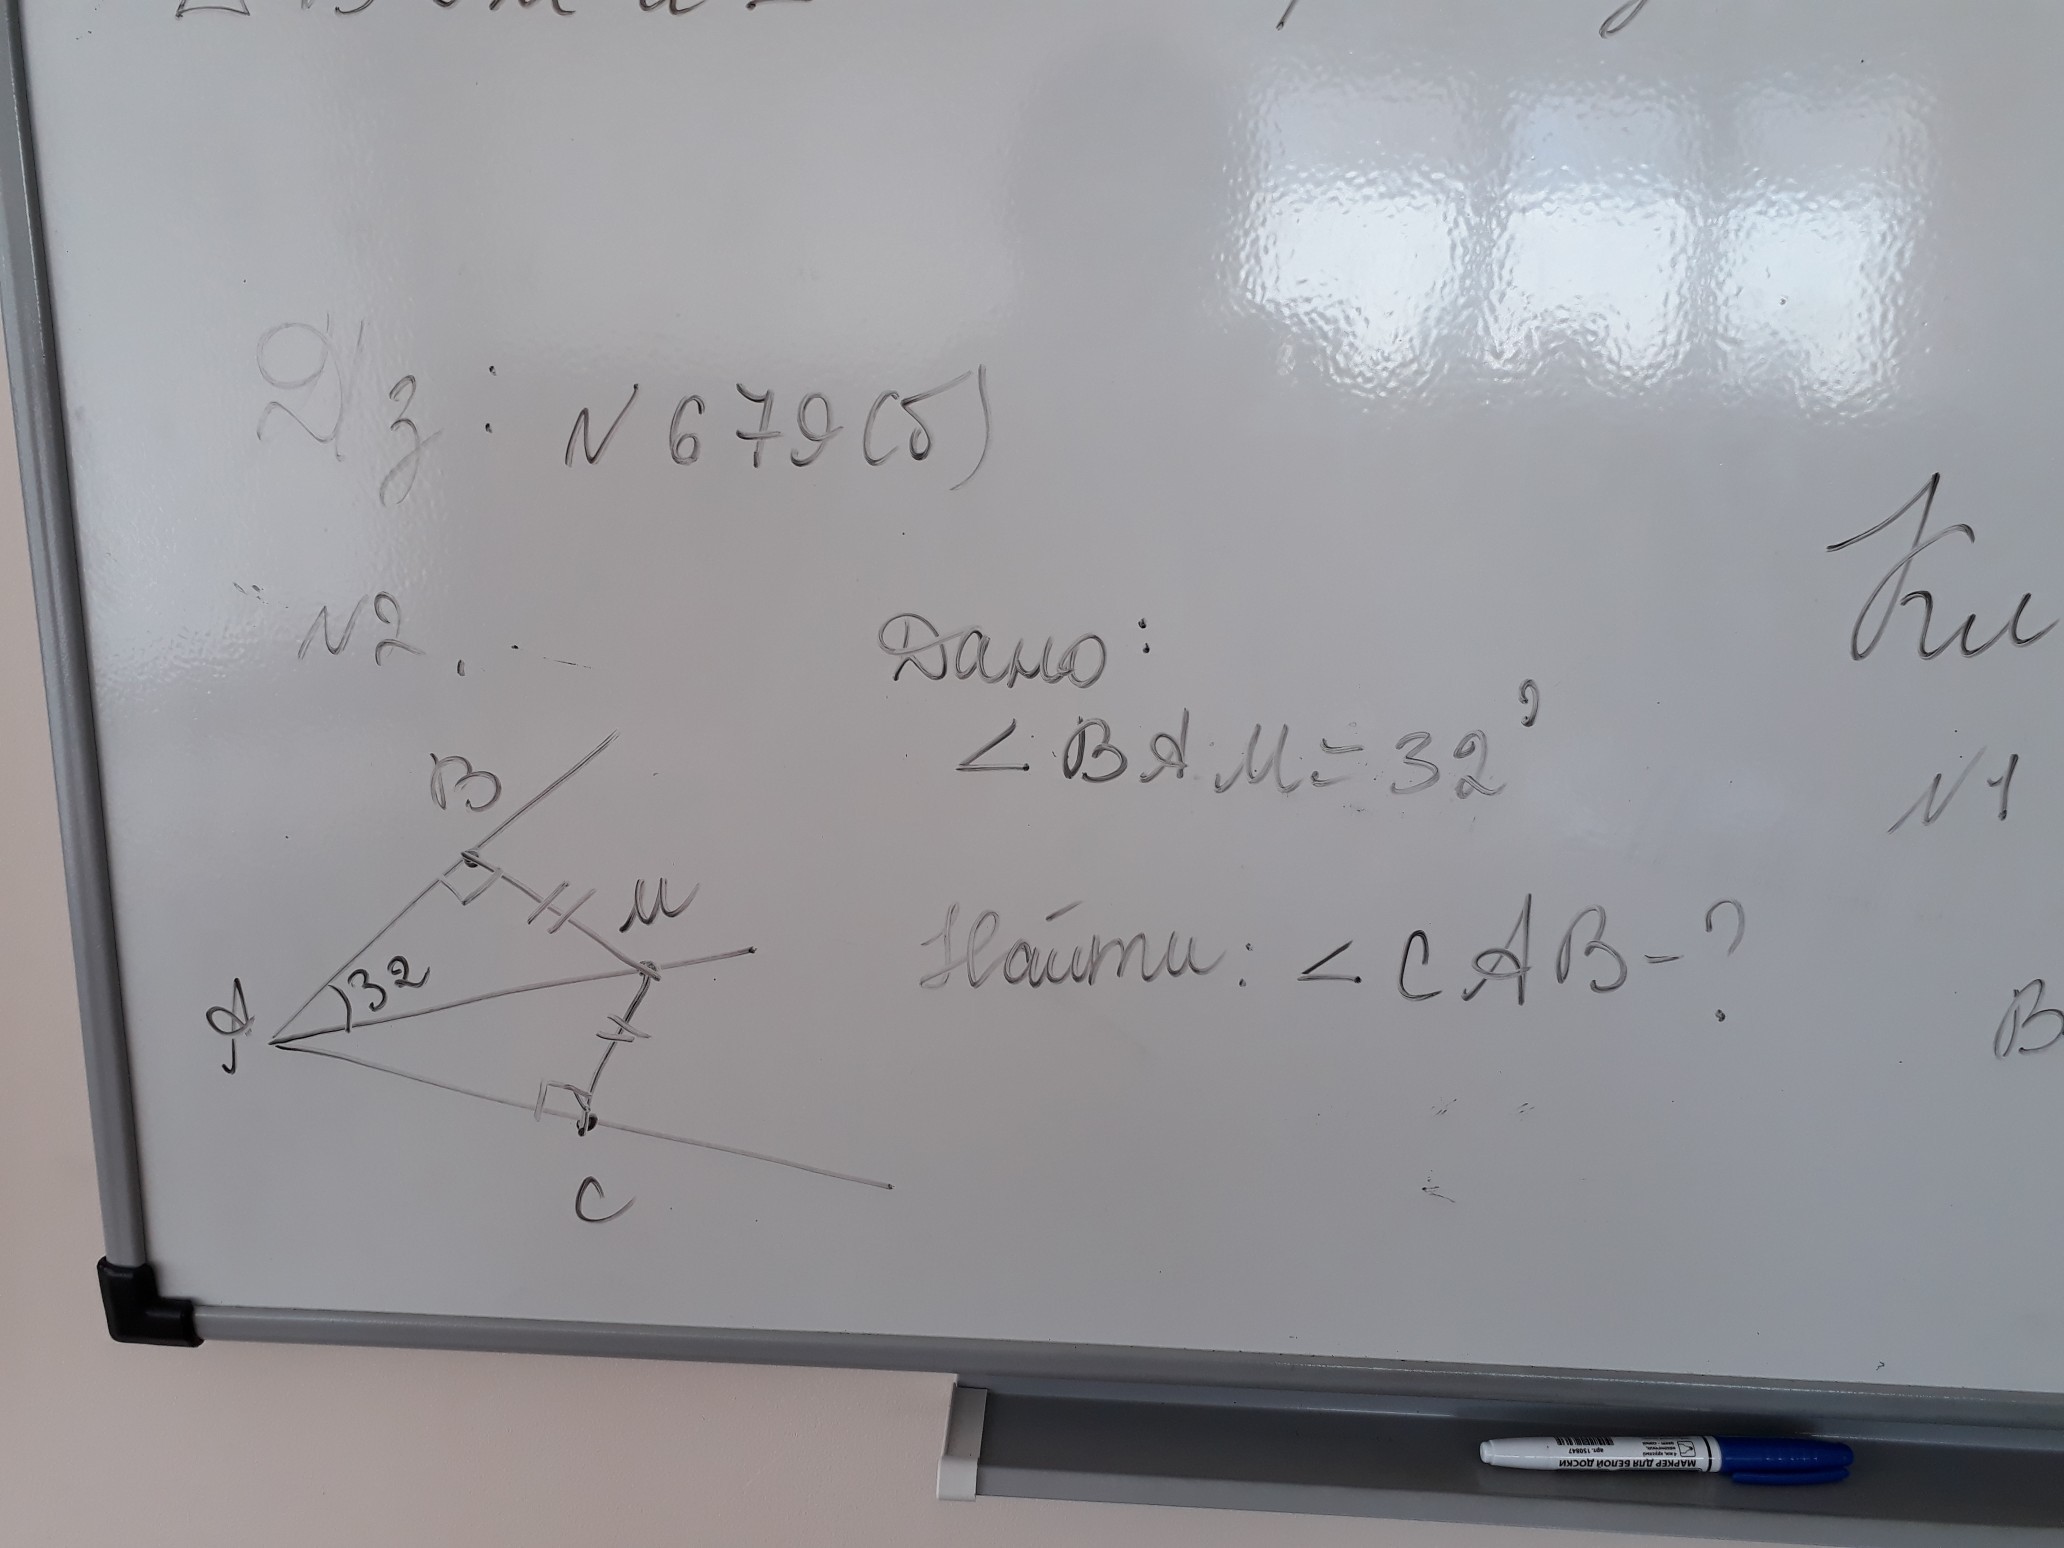 Д/з: N 679(б)
N2.
Дано:
∠BAM=32°
Найти: ∠CAB-?
B
M
32
A
C
Кл
N1
B
МАРКЕР ДЛЯ БЕЛОЙ ДОСКИ
арт. 150847